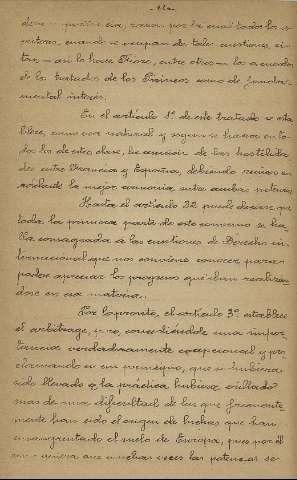 critores, cuando se ocupan de tales cuestiones, ci-
tan — así lo hace Fiore, entre otros — los acuerdos
de los tratados de los Pirineos como de funda-
mental interés.
En el artículo 1º de este tratado se esta-
blece, como era natural y según se hacía en to-
dos los de esta clase, la cesación de las hostilida-
des entre Francia y España, debiendo reinar en
adelante la mejor armonía entre ambas potencias.
Hasta el artículo 32 puede decirse que
toda la primera parte de este convenio se ha-
lla consagrada a las cuestiones de Derecho in-
ternacional que nos conviene conocer para
poder apreciar los progresos que iban realizán-
dose en esa materia.
Por lo pronto, el artículo 3º establece
el arbitraje, concediéndole una impor-
tancia verdaderamente excepcional y pro-
clamando un principio, que si hubiera
sido llevado a la práctica hubiera evitado
mas de una dificultad de las que frecuente-
mente han sido el origen de luchas que han
ensangrentado el suelo de Europa, pues por él
que muchas veces las potencias se